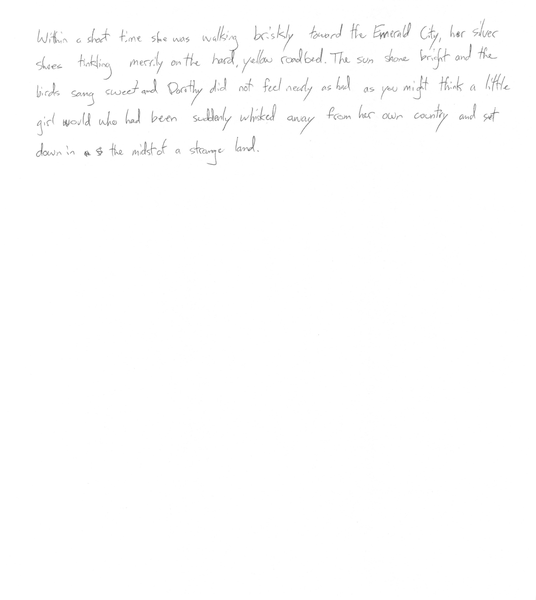 Within a short time she was walking briskly toward the Emerald City, her silver
shoes tinkling merrily on the hard, yellow roadbed. The sun shone bright and the
birds sang sweet and Dorothy did not feel nearly as bad as you might think a little
girl would who had been suddenly whisked away from her own country and set
down in the midst of a strange land.